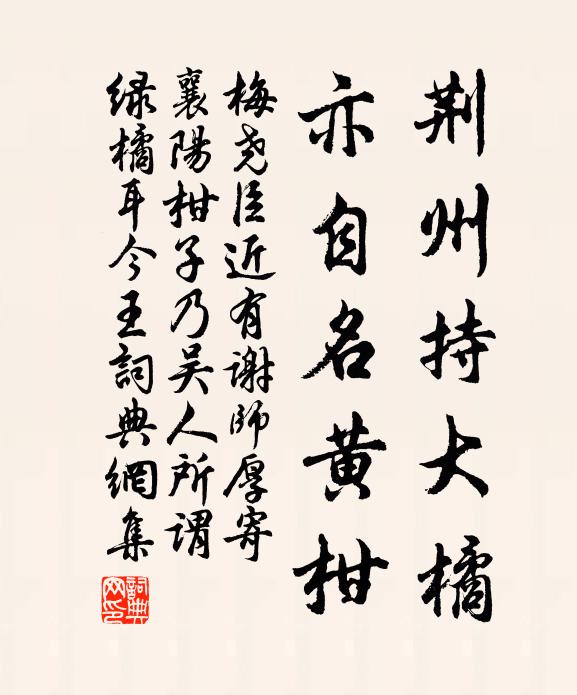 荆州持大橘
亦自名黄柑
梅尧臣近有谢師厚寄
襄陽柑子乃吴人所谓
绿橘耳今王詞典網集
詞典網印